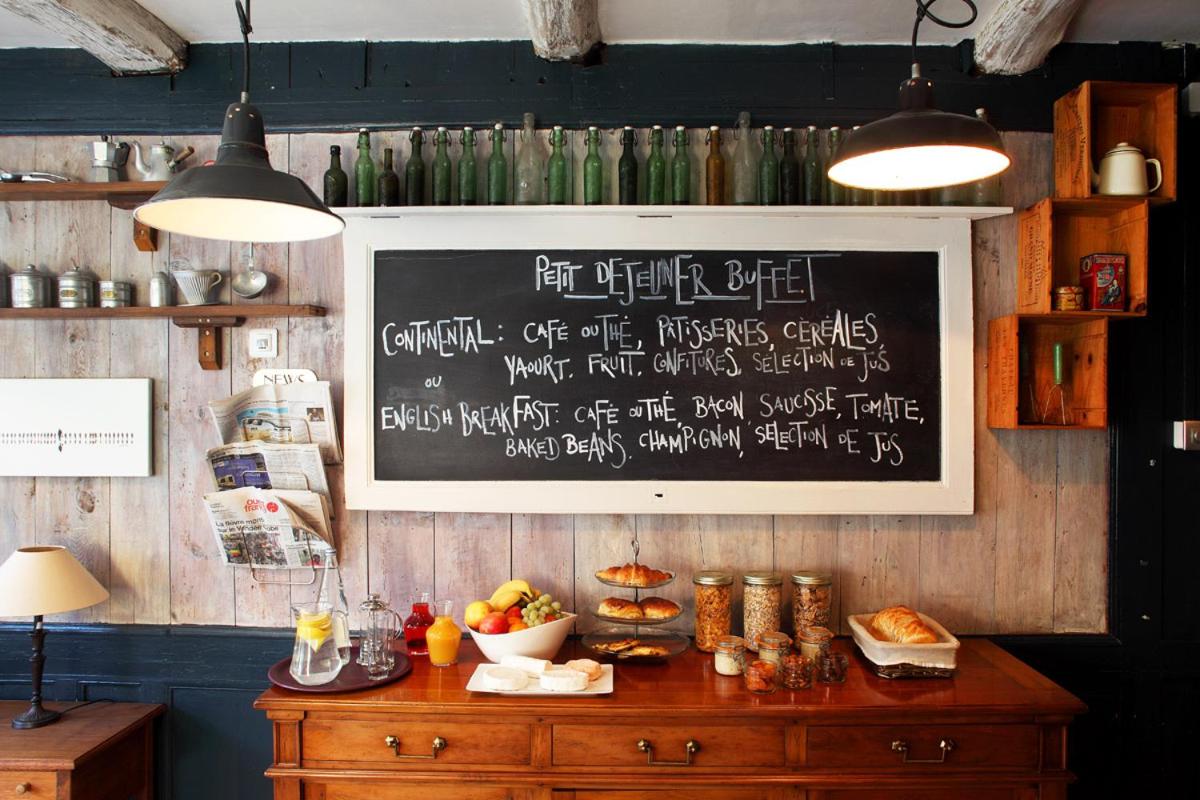 PETIT DEJEUNER BUFFET
CONTINENTAL: CAFÉ OU THÉ, PATISSERIES, CÈRÉALES,
YAOURT, FRUIT, CONFITURES, SÉLECTION DE JUS
OU
ENGLISH BREAKFAST: CAFÉ OU THÉ, BACON SAUCSSE, TOMATE,
BAKED BEANS, CHAMPIGNON, SELECTION DE JUS
NEWS
ouest
france
La fièvre monte
sur le Vendée Globe